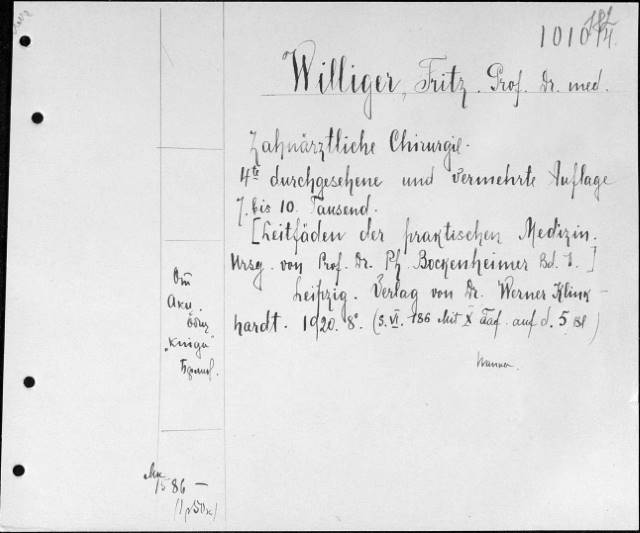 1010
Williger, Fritz. Prof. Dr. med.
Zahnärztliche Chirurgie.
4te durchgesehene und vermehrte Auflage
7. bis 10. Tausend.
[Leitfäden der praktischen Medizin.
Hrsg. von Prof. Dr. Ph. Bockenheimer Bd. I.]
Leipzig. Verlag von Dr. Werner Klink-
hardt. 1920. 8°. (S. VI. 186 Mit X Taf. auf d. 5 Bl)
От
Акц.
общ
"Книга"
Mk
1586 —